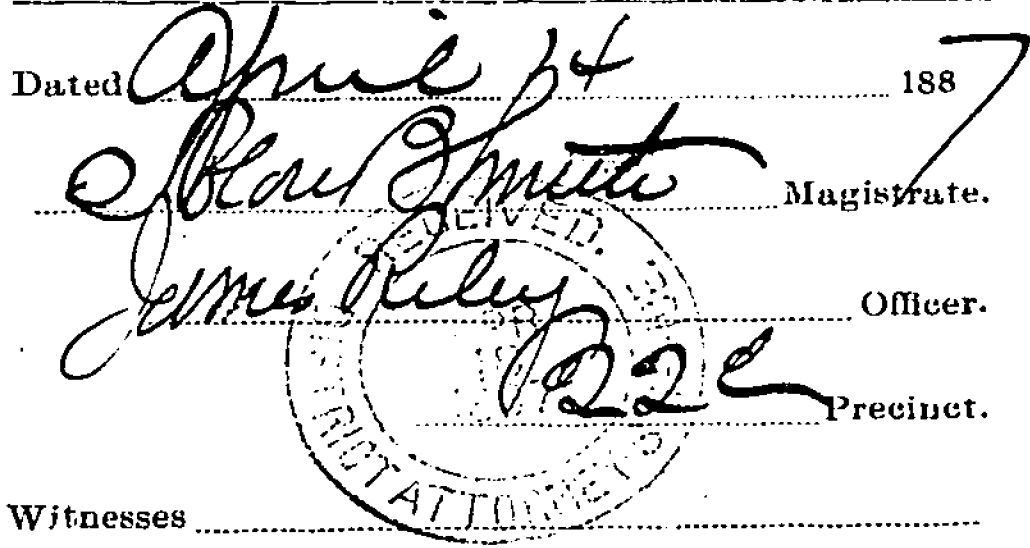 Dated April 14 1887
Solon B Smith Magistrate.
James Riley Officer.
22 Precinct.
Witnesses
RECEIVED.
DISTRICT ATTORNEY'S